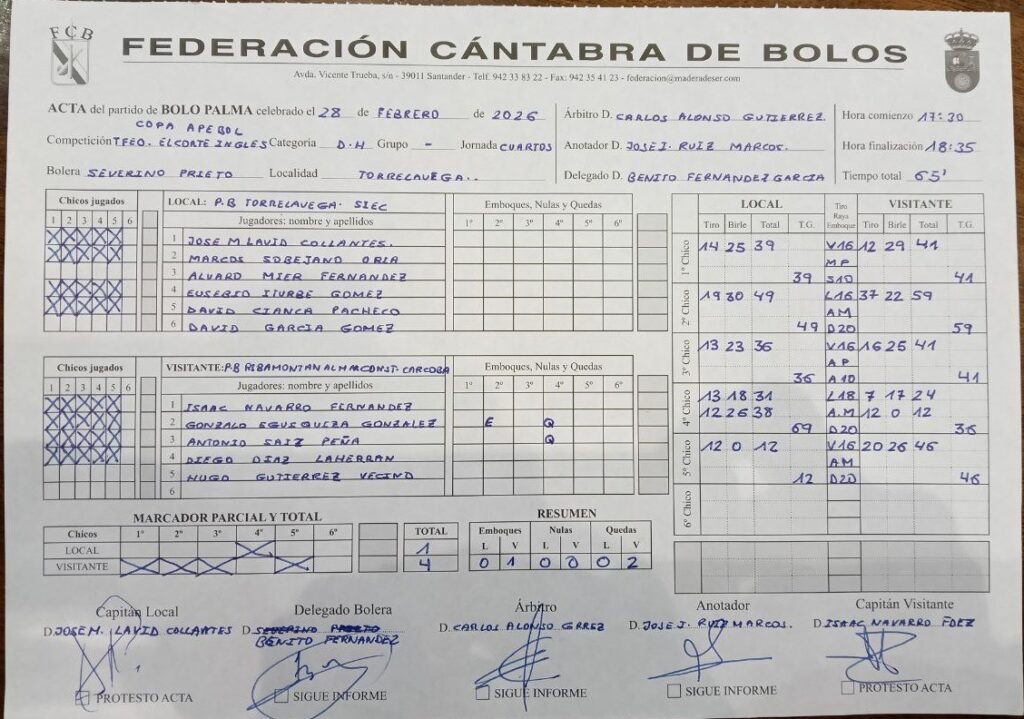 FCB
FEDERACIÓN CÁNTABRA DE BOLOS
Avda. Vicente Trueba, s/n - 39011 Santander - Telf. 942 33 83 22 - Fax: 942 35 41 23 - federacion@maderadeser.com
ACTA del partido de BOLO PALMA celebrado el 28 de FEBRERO de 2026
COPA APEBOL
Competición TFEO. EL CORTE INGLES Categoría D.H Grupo - Jornada CUARTOS
Bolera SEVERINO PRIETO Localidad TORRELAVEGA..
Árbitro D. CARLOS ALONSO GUTIERREZ
Anotador D. JOSE J. RUIZ MARCOS.
Delegado D. BENITO FERNANDEZ GARCIA
Hora comienzo 17:30
Hora finalización 18:35
Tiempo total 65'
Chicos jugados
1 2 3 4 5 6
LOCAL: P.B TORRELAVEGA. SIEC
Jugadores: nombre y apellidos
Emboques, Nulas y Quedas
1º 2º 3º 4º 5º 6º
1 JOSE M LAVID COLLANTES.
2 MARCOS SOBEJANO ORIA
3 ALVARO MIER FERNANDEZ
4 EUSEBIO ITURBE GOMEZ
5 DAVID CIANCA PACHECO
6 DAVID GARCIA GOMEZ
Chicos jugados
1 2 3 4 5 6
VISITANTE: P.B RIBAMONTAN AL MAR CONST. CARCOBA
Jugadores: nombre y apellidos
Emboques, Nulas y Quedas
1º 2º 3º 4º 5º 6º
1 ISAAC NAVARRO FERNANDEZ
2 GONZALO EGUSQUIZA GONZALEZ E Q
3 ANTONIO SAIZ PEÑA Q
4 DIEGO DIAZ LAHERRAN
5 HUGO GUTIERREZ VECINO
6
LOCAL Tiro Raya Emboque VISITANTE
Tiro Birle Total T.G. Tiro Birle Total T.G.
1º Chico 14 25 39 V16 12 29 41
MP
39 S10 41
2º Chico 19 30 49 L16 37 22 59
AM
49 D20 59
3º Chico 13 23 36 V16 16 25 41
AP
36 A10 41
4º Chico 13 18 31 L18 7 17 24
12 26 38 A.M 12 0 12
69 D20 36
5º Chico 12 0 12 V16 20 26 46
AM
12 D20 46
6º Chico
MARCADOR PARCIAL Y TOTAL
Chicos 1º 2º 3º 4º 5º 6º TOTAL
LOCAL 1
VISITANTE 4
RESUMEN
Emboques Nulas Quedas
L V L V L V
0 1 0 0 0 2
Capitán Local
D. JOSE M. LAVID COLLANTES
PROTESTO ACTA
Delegado Bolera
D. SEVERINO PRIETO
BENITO FERNANDEZ
SIGUE INFORME
Árbitro
D. CARLOS ALONSO GRREZ
SIGUE INFORME
Anotador
D. JOSE J. RUIZ MARCOS.
SIGUE INFORME
Capitán Visitante
D. ISAAC NAVARRO FDEZ
PROTESTO ACTA